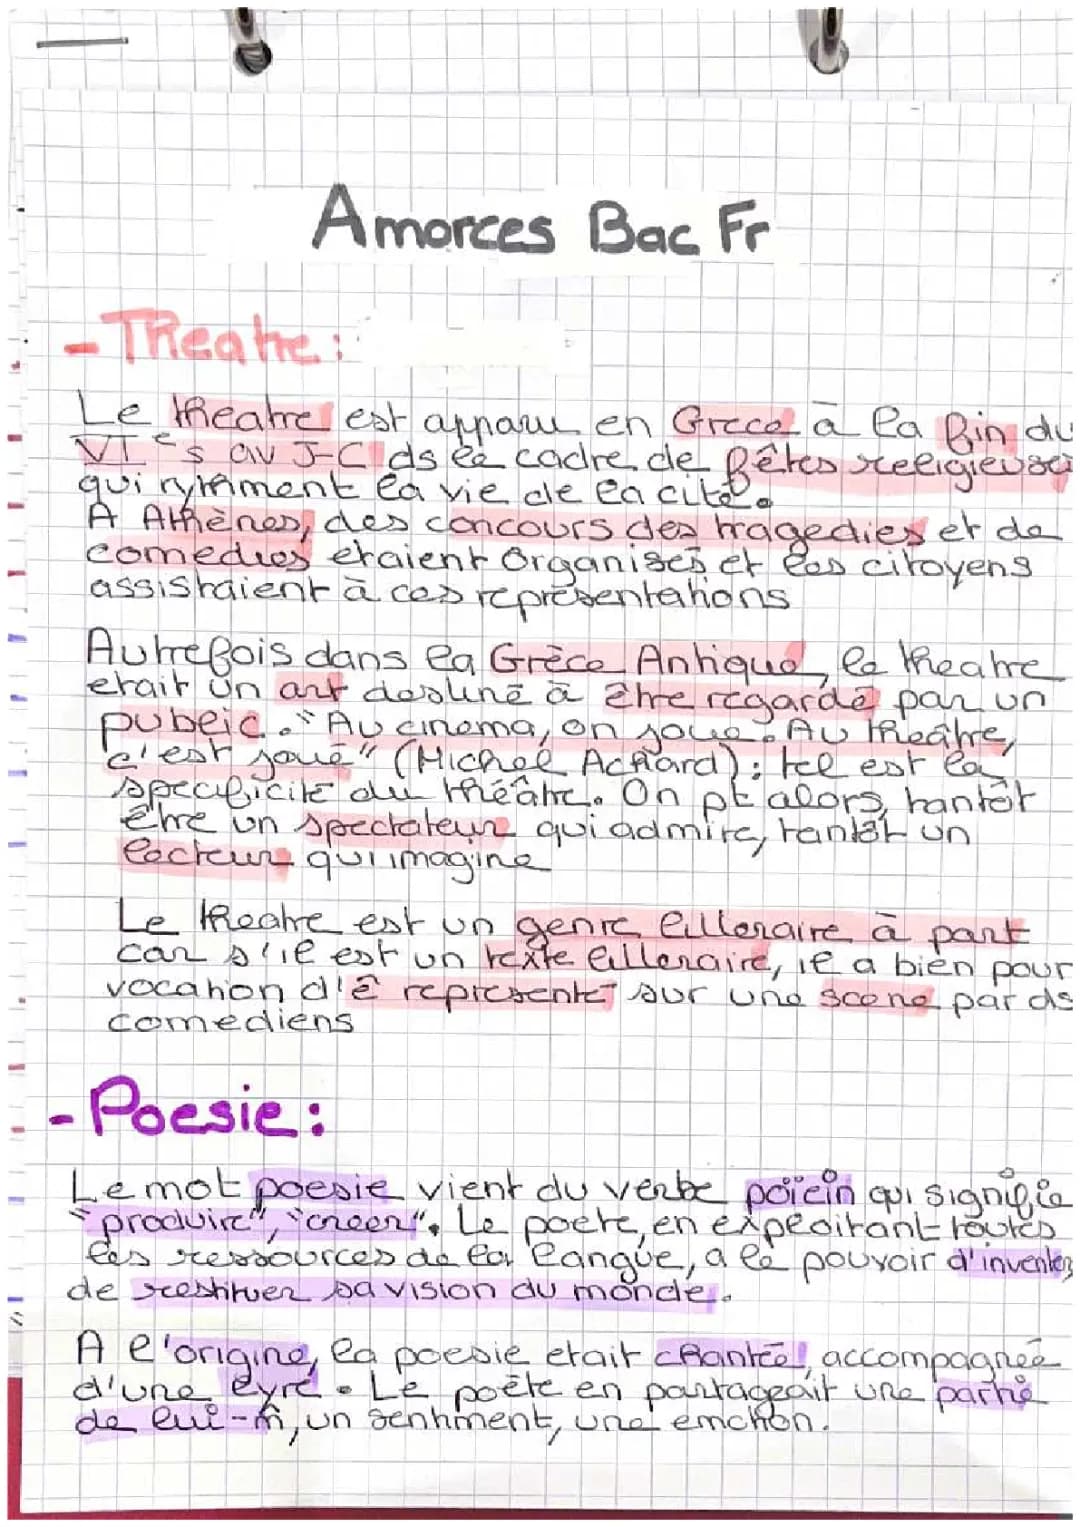 Amorces Bac Fr
- Theatre :
Le theatre est apparu en Grece à la fin du
VIe s av J-C ds le cadre de fêtes religieuses
qui rythment la vie de la cité.
A Athènes, des concours des tragedies et de
comedies etaient organisés et les citoyens
assistaient à ces représentations
Autrefois dans la Grèce Antique, le theatre
etait un art destiné à être regardé par un
public. "Au cinema, on joue. Au theâtre,
c'est joué" (Michel Achard) : tel est la
specificité du théâtre. On pt alors, tantôt
être un spectateur qui admire, tantôt un
lecteur qui imagine
Le theatre est un genre litteraire à part
car s'il est un texte litteraire, il a bien pour
vocation d'ê representé sur une scene par ds
comediens
- Poesie :
Le mot poesie vient du verbe poïein qui signifie
"produire", "creer". Le poete, en exploitant toutes
les ressources de la langue, a le pouvoir d'inventer,
de restituer sa vision du monde.
A l'origine, la poesie etait chantée, accompagnée
d'une lyre. Le poète en partageait une partie
de lui-m̂, un sentiment, une emotion.